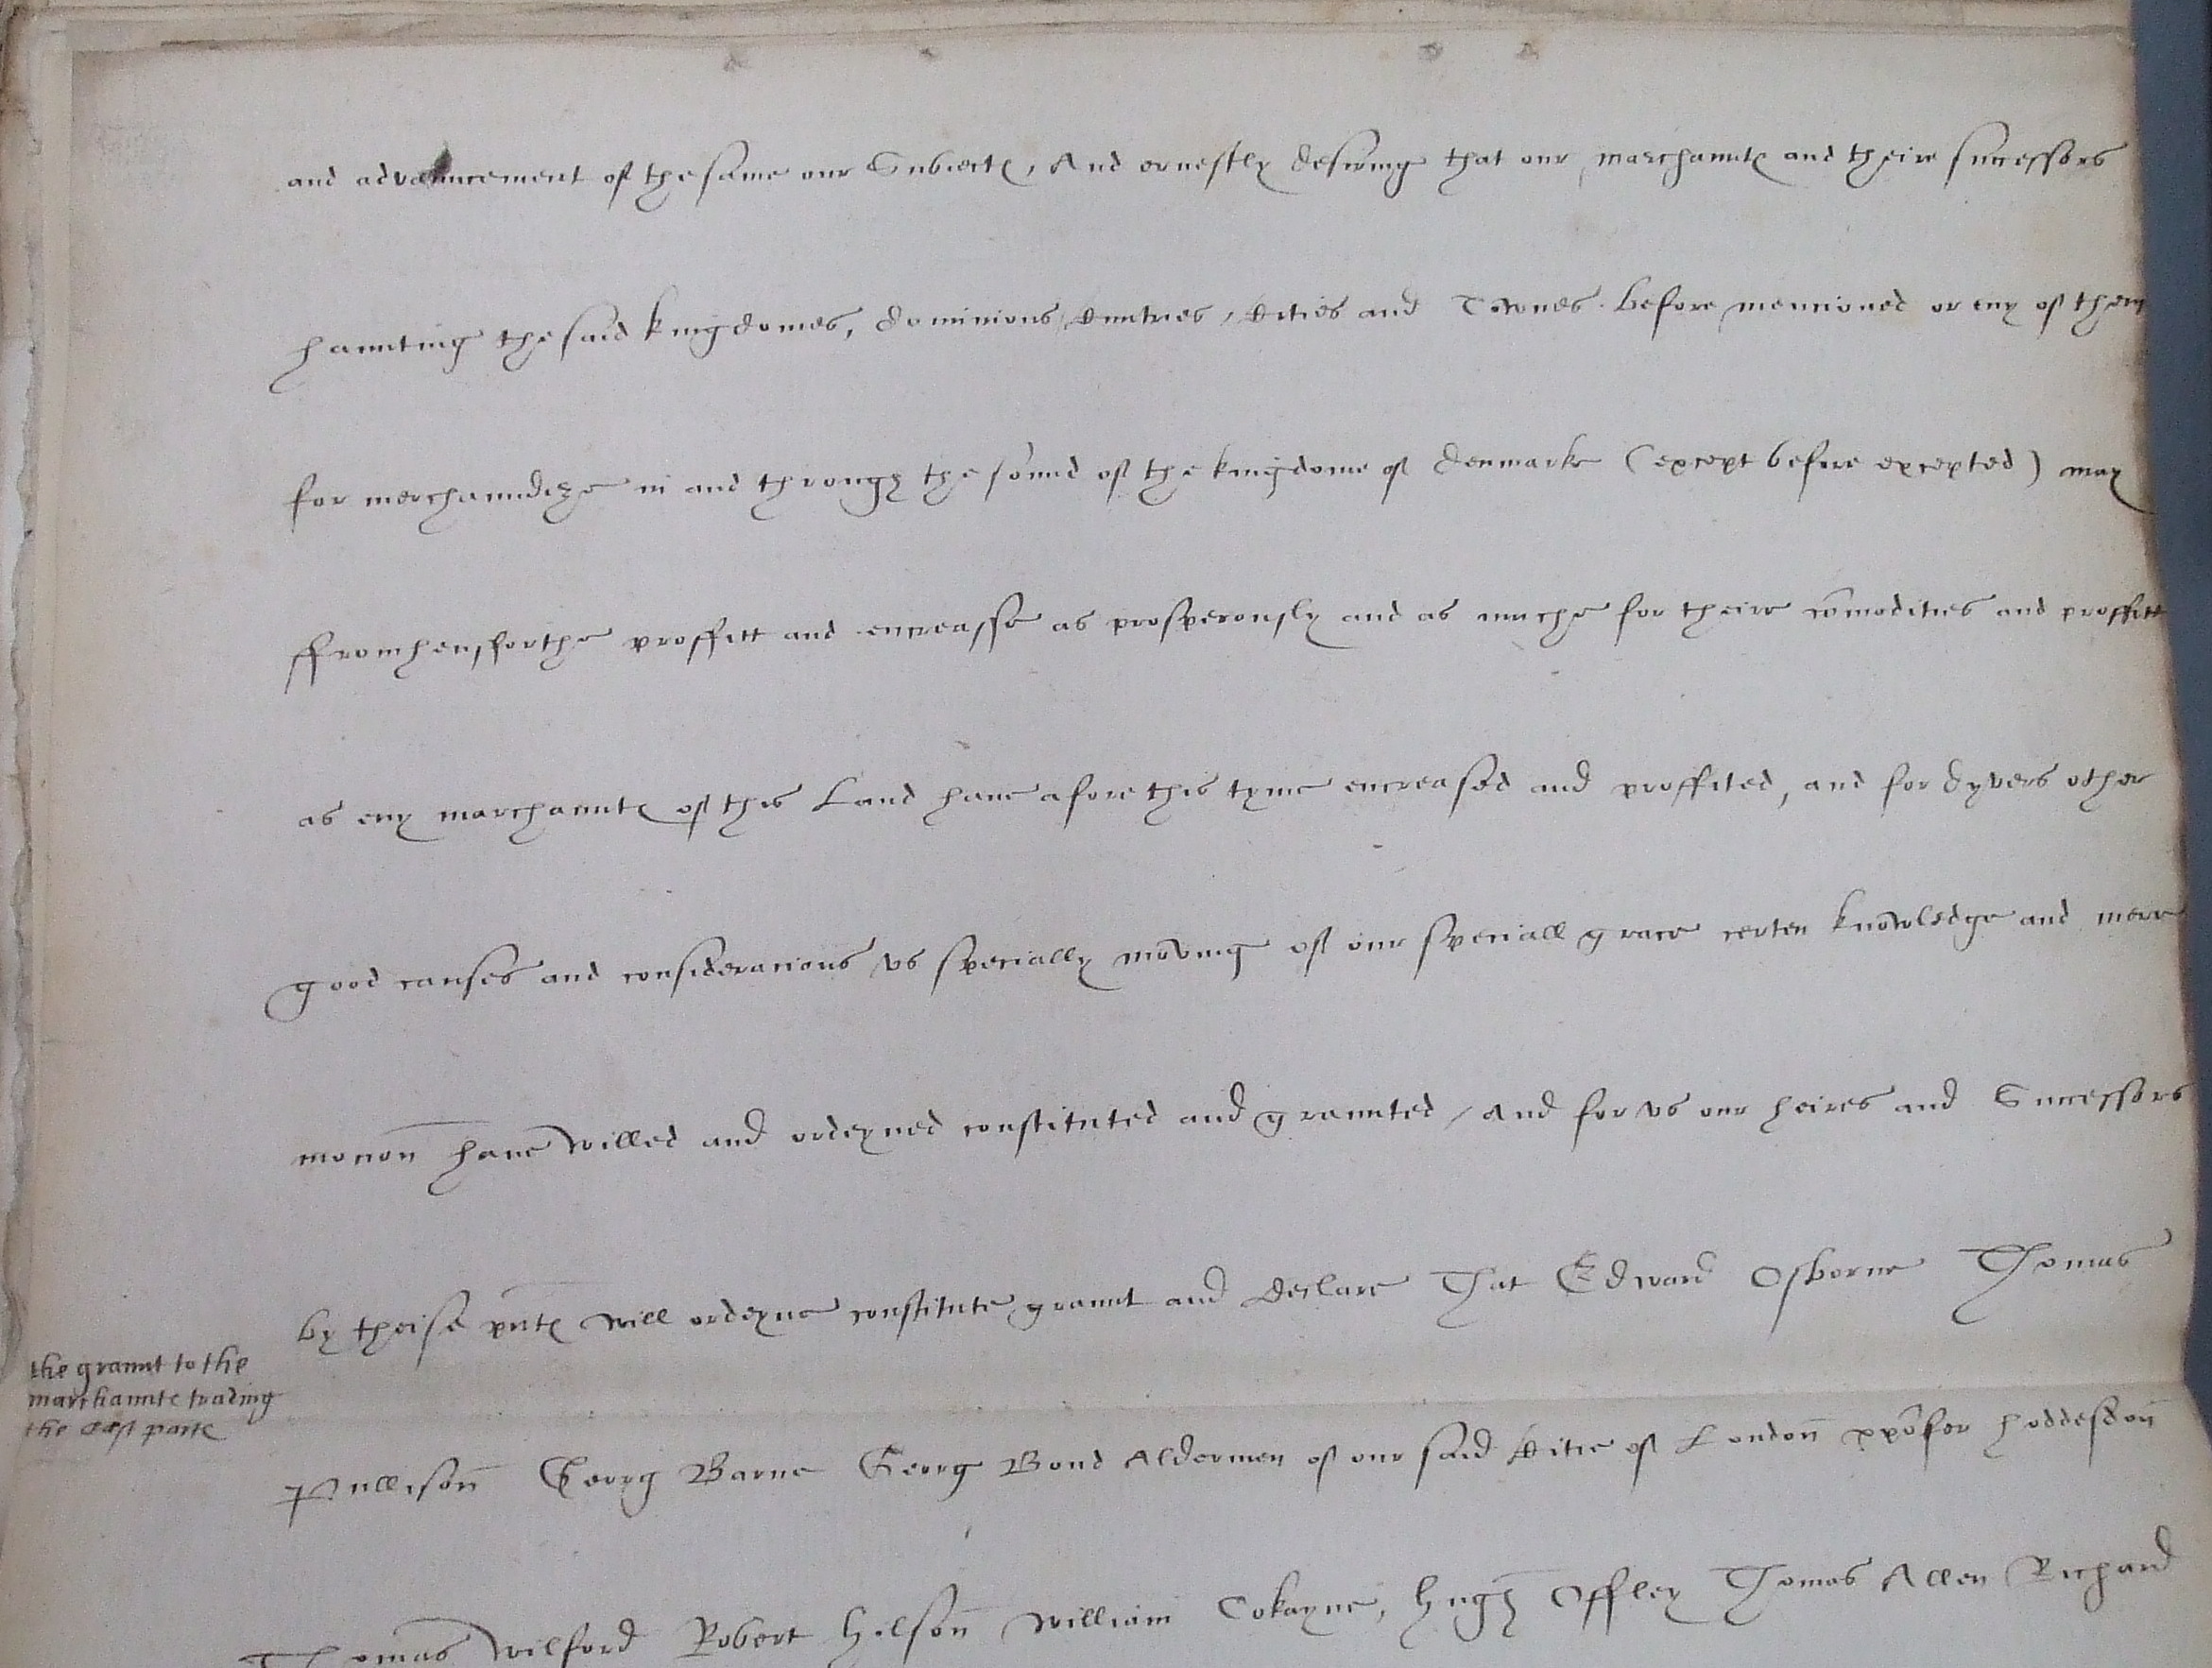 and advauncement of the same our Subiectes, And ernestly desiring that our marchauntes and theire successors
haunting the said kingdomes, dominions, Cuntries, Cities and Townes before mencioned or eny of them
for merchaundize in and through the sound of the kingdome of Denmarke (except before excepted) may
ffromhensforthe proffitt and encreasse as prosperously and as muche for theire comodities and proffitt
as eny marchauntes of this Land haue afore this tyme encreased and proffited, and for dyvers other
good causes and consideracions vs specially moving of our speciall grace certen knowledge and mere
mocion haue willed and ordeyned constituted and graunted, And for vs our heires and Successors
by theise pntes will ordeyne constitute graunt and declare That Edward Osborne Thomas
the graunt to the
marchauntes trading
the east partes
Pullison Georg Barne Georg Bond Aldermen of our said Citie of London xpofer hoddesdon
Thomas wilford Robert Hilson william Cokayne, Hugh Offley Thomas Allen Richard